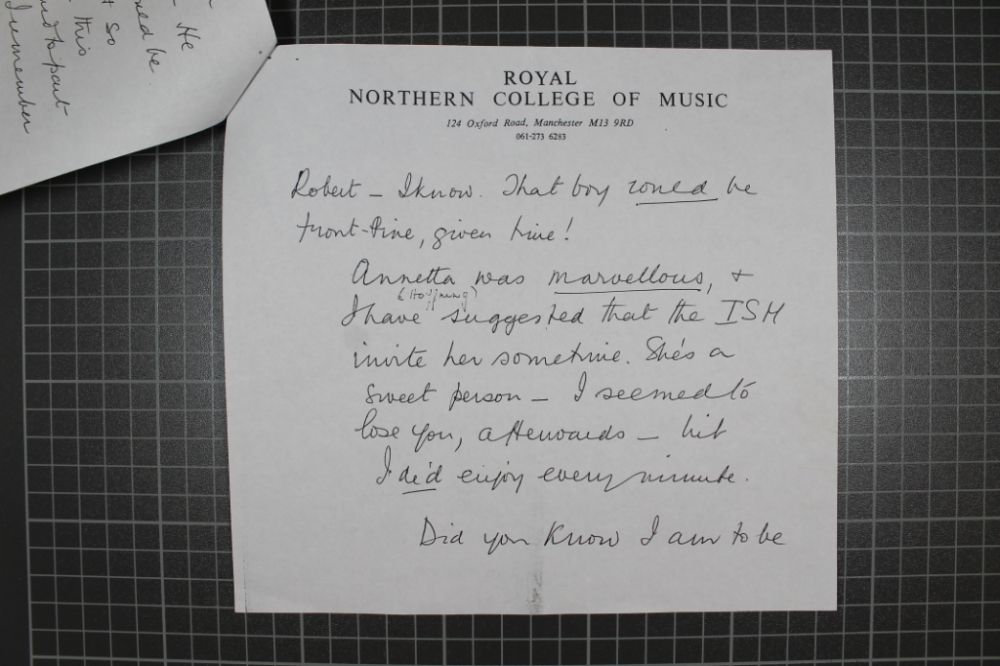 He
be
so
this
I remember
ROYAL
NORTHERN COLLEGE OF MUSIC
124 Oxford Road, Manchester M13 9RD
061-273 6283
Robert – I know. That boy could be
front-line, given time!
Annetta was marvellous, +
(Hoffnung)
I have suggested that the ISM
invite her sometime. She's a
sweet person – I seemed to
lose you, afterwards – but
I did enjoy every minute.
Did you know I am to be